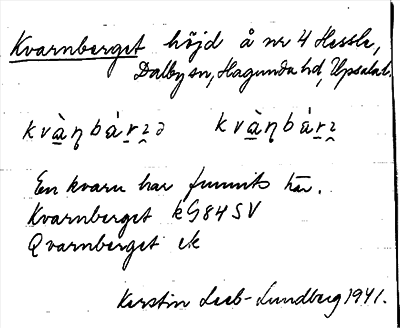 Kvarnberget höjd å nr 4 Hessle,
Dalby sn, Hagunda hd, Upsala l.
kvàṉbáṟʒ̱ə kvàṉbáṟʒ̱
En kvarn har funnits här.
Kvarnberget kG84SV
Qvarnberget ek
Kerstin Leeb-Lundberg 1941.